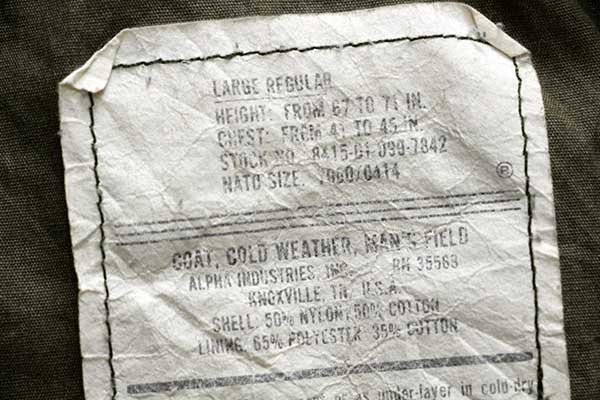 LARGE REGULAR
HEIGHT: FROM 67 TO 71 IN.
CHEST: FROM 41 TO 45 IN.
STOCK NO. 8415-01-099-7842
NATO SIZE. 7080/0414
®
COAT, COLD WEATHER, MAN'S FIELD
ALPHA INDUSTRIES, INC. RN 35583
KNOXVILLE, TN. U.S.A.
SHELL: 50% NYLON, 50% COTTON
LINING: 65% POLYESTER 35% COTTON
as under-layer in cold-dry